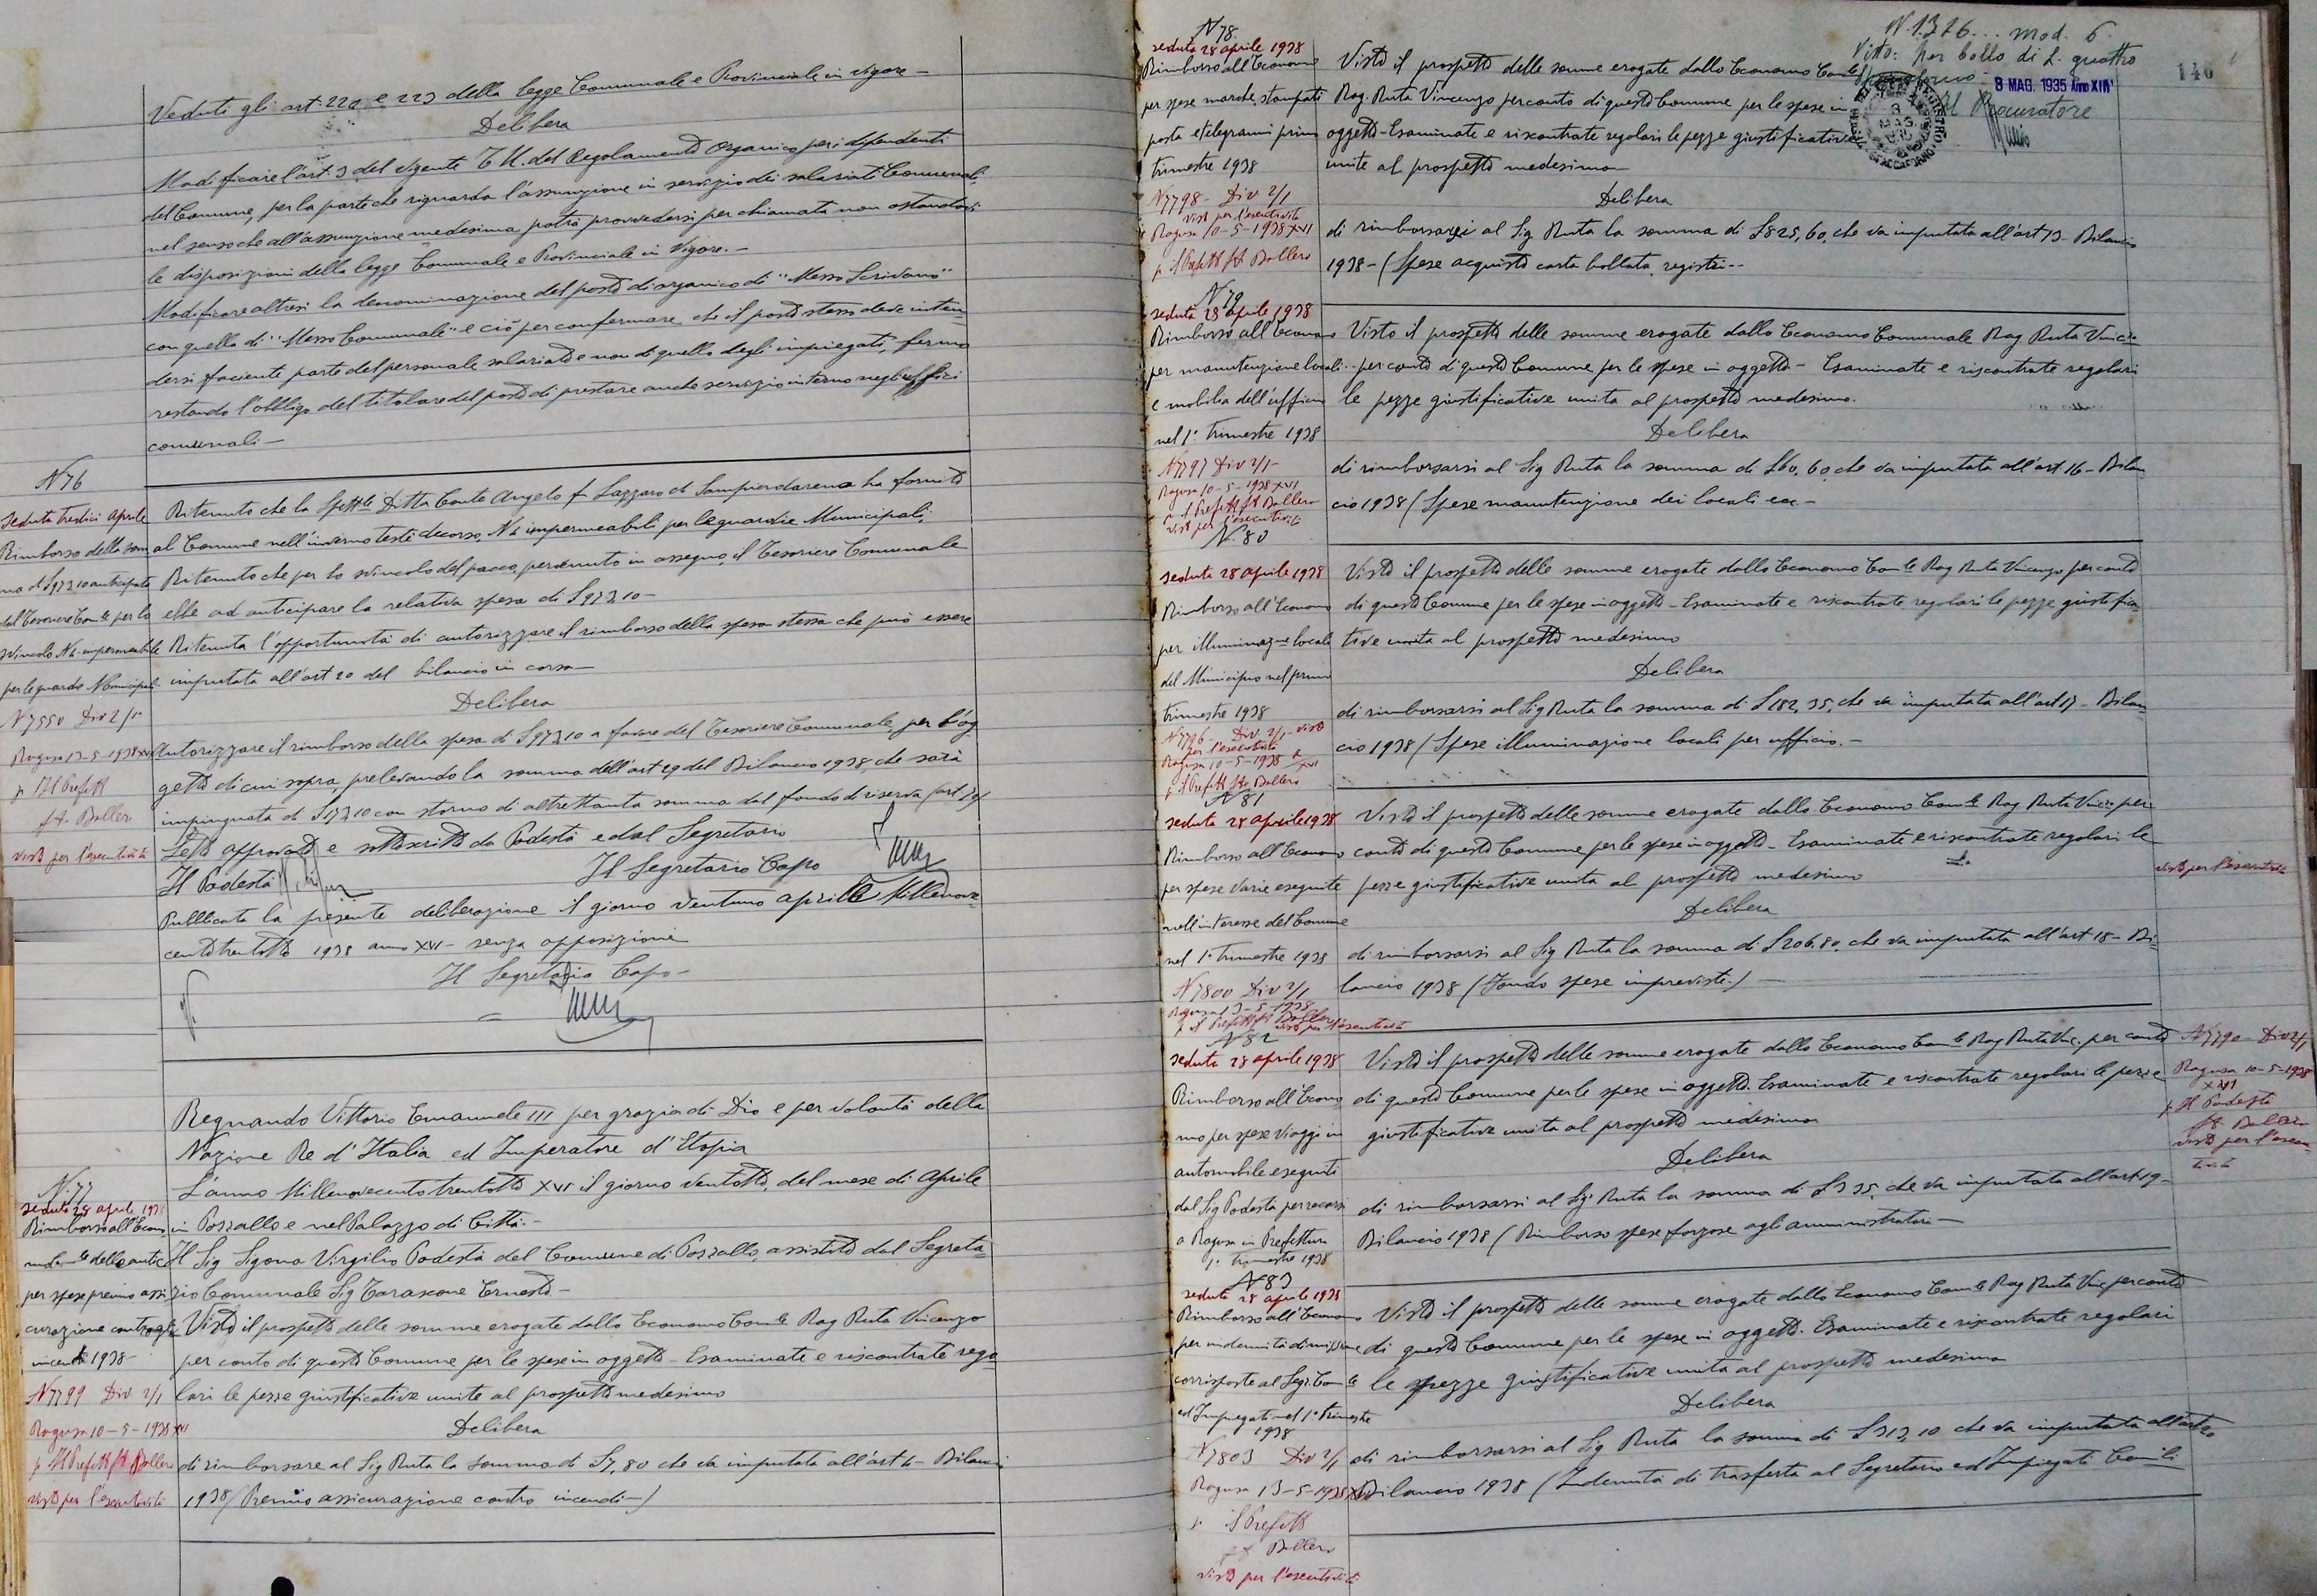 Veduti gli art. 222 e 223 della legge Comunale e Provinciale in vigore -
Delibera
Modificare l'art 3 del vigente T.U. del Regolamento organico per i dipendenti
del Comune, per la parte che riguarda l'assunzione in servizio dei salariati Comunali,
nel senso che all'assunzione medesima potrà provvedersi per chiamata non ostandovi
le disposizioni della legge Comunale e Provinciale in Vigore. -
Modificare altresì la denominazione del posto di organico di "Messo Scrivano"
con quella di "Messo Comunale" e ciò per confermare che il posto stesso deve inten
dersi faciente parte del personale salariato e non di quello degli impiegati, fermo
restando l'obbligo del titolare del posto di prestare anche servizio interno negli uffici
comunali -
N 76
seduta tredici aprile
Rimborso della som
ma di £ 973,10 anticipata
dal Tesoriere Com.le per lo
svincolo N 4 impermeabili
per le guardie Municipali
N 7550 Div 2/1
Ragusa 13-5-1938 XVI
p Il Prefetto
ft. Ballero
visto per l'esecutività
Ritenuto che la Spett.le Ditta Conte Angelo fu Lazzaro di Sampierdarena ha fornito
al Comune nell'inverno testè decorso N 4 impermeabili per le guardie Municipali;
Ritenuto che per lo svincolo del pacco, pervenuto in assegno, il Tesoriere Comunale
ebbe ad anticipare la relativa spesa di £ 973,10 -
Ritenuta l'opportunità di autorizzare il rimborso della spesa stessa che può essere
imputata all'art 20 del bilancio in corso -
Delibera
Autorizzare il rimborso della spesa di £ 973,10 a favore del Tesoriere Comunale per l'og
getto di cui sopra, prelevando la somma dell'art 29 del Bilancio 1938, che sarà
impinguata di £ 173,10 con storno di altrettanta somma dal fondo di riserva
Letto approvato e sottoscritto da Podestà e dal Segretario
Il Podestà Il Segretario Capo
Pubblicata la presente deliberazione il giorno ventuno aprile Millenove-
centotrentotto 1938 anno XVI - senza opposizione
Il Segretario Capo -
Regnando Vittorio Emanuele III per grazia di Dio e per volontà della
Nazione Re d'Italia ed Imperatore d'Etopia
L'anno Millenovecentotrentotto XVI il giorno ventotto, del mese di Aprile
in Pozzallo e nel Palazzo di Città. -
Il Sig Sigona Virgilio Podestà del Comune di Pozzallo, assistito dal Segreta
rio Comunale Sig Tarascone Ernesto -
N. 77
seduta 28 aprile 1938
Rimborso all'Econo
mo Com.le delle antici
per spese premio assi
curazione contro gli
incendi 1938 -
N 7799 Div 2/1
Ragusa 10-5-1938 XVI
p Il Prefetto ft Ballero
visto per l'esecutività
Visto il prospetto delle somme erogate dallo Economo Com.le Rag Ruta Vincenzo
per conto di questo Comune per le spese in oggetto - Esaminate e riscontrate rego
lari le pezze giustificative unite al prospetto medesimo
Delibera
di rimborsare al Sig Ruta la somma di £ 7,80 che va imputata all'art 4 - Bilancio
1938 (Premio assicurazione contro incendi -)
N. 1326... mod. 6.
Visto: per bollo di L. quattro
8 MAG. 1935 Anno XIII
Il Procuratore
146
N 78.
seduta 28 aprile 1938
Rimborso all'Economo
per spese marche, stampati
posta e telegrammi primo
trimestre 1938
N 7798 - Div 2/1
visto per l'esecutività
Ragusa 10-5-1938 XVI
p Il Prefetto ft Ballero
Visto il prospetto delle somme erogate dallo Economo Com.le
Rag. Ruta Vincenzo per conto di questo Comune per le spese in
oggetto - Esaminate e riscontrate regolari le pezze giustificative
unite al prospetto medesimo
Delibera
di rimborsarsi al Sig Ruta la somma di £ 825,60, che va imputata all'art 13 - Bilancio
1938 - (Spese acquisto carta bollata, registri --
N 79
seduta 28 aprile 1938
Rimborso all'Economo
per manutenzione locali
e mobilia dell'ufficio
nel 1° trimestre 1938
N 7797 Div 2/1 -
Ragusa 10-5-1938 XVI
p Il Prefetto ft Ballero
visto per l'esecutività
Visto il prospetto delle somme erogate dallo Economo Comunale Rag Ruta Vinc.
per conto di questo Comune per le spese in oggetto - Esaminate e riscontrate regolari
le pezze giustificative unita al prospetto medesimo.
Delibera
di rimborsarsi al Sig Ruta la somma di £ 60,60, che va imputata all'art 16 - Bilan
cio 1938 (Spese manutenzione dei locali ecc -
N. 80
seduta 28 aprile 1938
Rimborso all'Economo
per illuminazione locali
del Municipio nel primo
trimestre 1938
N 7796 - Div 2/1 - visto
per l'esecutività
Ragusa 10-5-1938 XVI
p Il Prefetto ft Ballero
Visto il prospetto delle somme erogate dallo Economo Com.le Rag Ruta Vincenzo per conto
di questo Comune per le spese in oggetto - Esaminate e riscontrate regolari le pezze giustifica
tive unita al prospetto medesimo
Delibera
di rimborsarsi al Sig Ruta la somma di £ 182,35, che va imputata all'art 17 - Bilan
cio 1938 (Spese illuminazione locali per ufficio. -
N 81
seduta 28 aprile 1938
Rimborso all'Economo
per spese varie eseguite
nell'interesse del Comune
nel 1° trimestre 1938
N 7800 Div 2/1
Ragusa 13-5-1938
p Il Prefetto ft Ballero
visto per l'esecutività
Visto il prospetto delle somme erogate dallo Economo Com.le Rag Ruta Vinc. per
conto di questo Comune per le spese in oggetto - Esaminate e riscontrate regolari le
pezze giustificative unita al prospetto medesimo
Delibera
di rimborsarsi al Sig Ruta la somma di £ 206,80, che va imputata all'art 18 - Bi-
lancio 1938 (Fondo spese impreviste.) -
visto per l'esecutività
N 82
seduta 28 aprile 1938
Rimborso all'Econo
mo per spese viaggi in
automobile eseguiti
dal Sig Podestà per recarsi
a Ragusa in Prefettura
1° trimestre 1938
Visto il prospetto delle somme erogate dallo Economo Com.le Rag Ruta Vinc. per conto
di questo Comune per le spese in oggetto. Esaminate e riscontrate regolari le pezze
giustificative unita al prospetto medesimo
Delibera
di rimborsarsi al Sig. Ruta la somma di £ 335, che va imputata all'art 19 -
Bilancio 1938 (Rimborso spese forzose agli amministratori -
N 7790 - Div 2/1
Ragusa 10-5-1938
XVI
p Il Podestà
ft Ballero
visto per l'esecu-
tività
N 83
seduta 28 aprile 1938
Rimborso all'Economo
per indennità di missione
corrisposte al Segr. Com.le
ed Impiegati nel 1° trimestre
1938
N 7803 Div 2/1
Ragusa 13-5-1938 XVI
p Il Prefetto
ft Ballero
visto per l'esecutività
Visto il prospetto delle somme erogate dallo Economo Com.le Rag Ruta Vinc. per conto
di questo Comune per le spese in oggetto. Esaminate e riscontrate regolari
le pezze giustificative unita al prospetto medesimo
Delibera
di rimborsarsi al Sig Ruta la somma di £ 313,10 che va imputata all'art
Bilancio 1938 (Indennità di trasferta al Segretario ed Impiegati Com.li